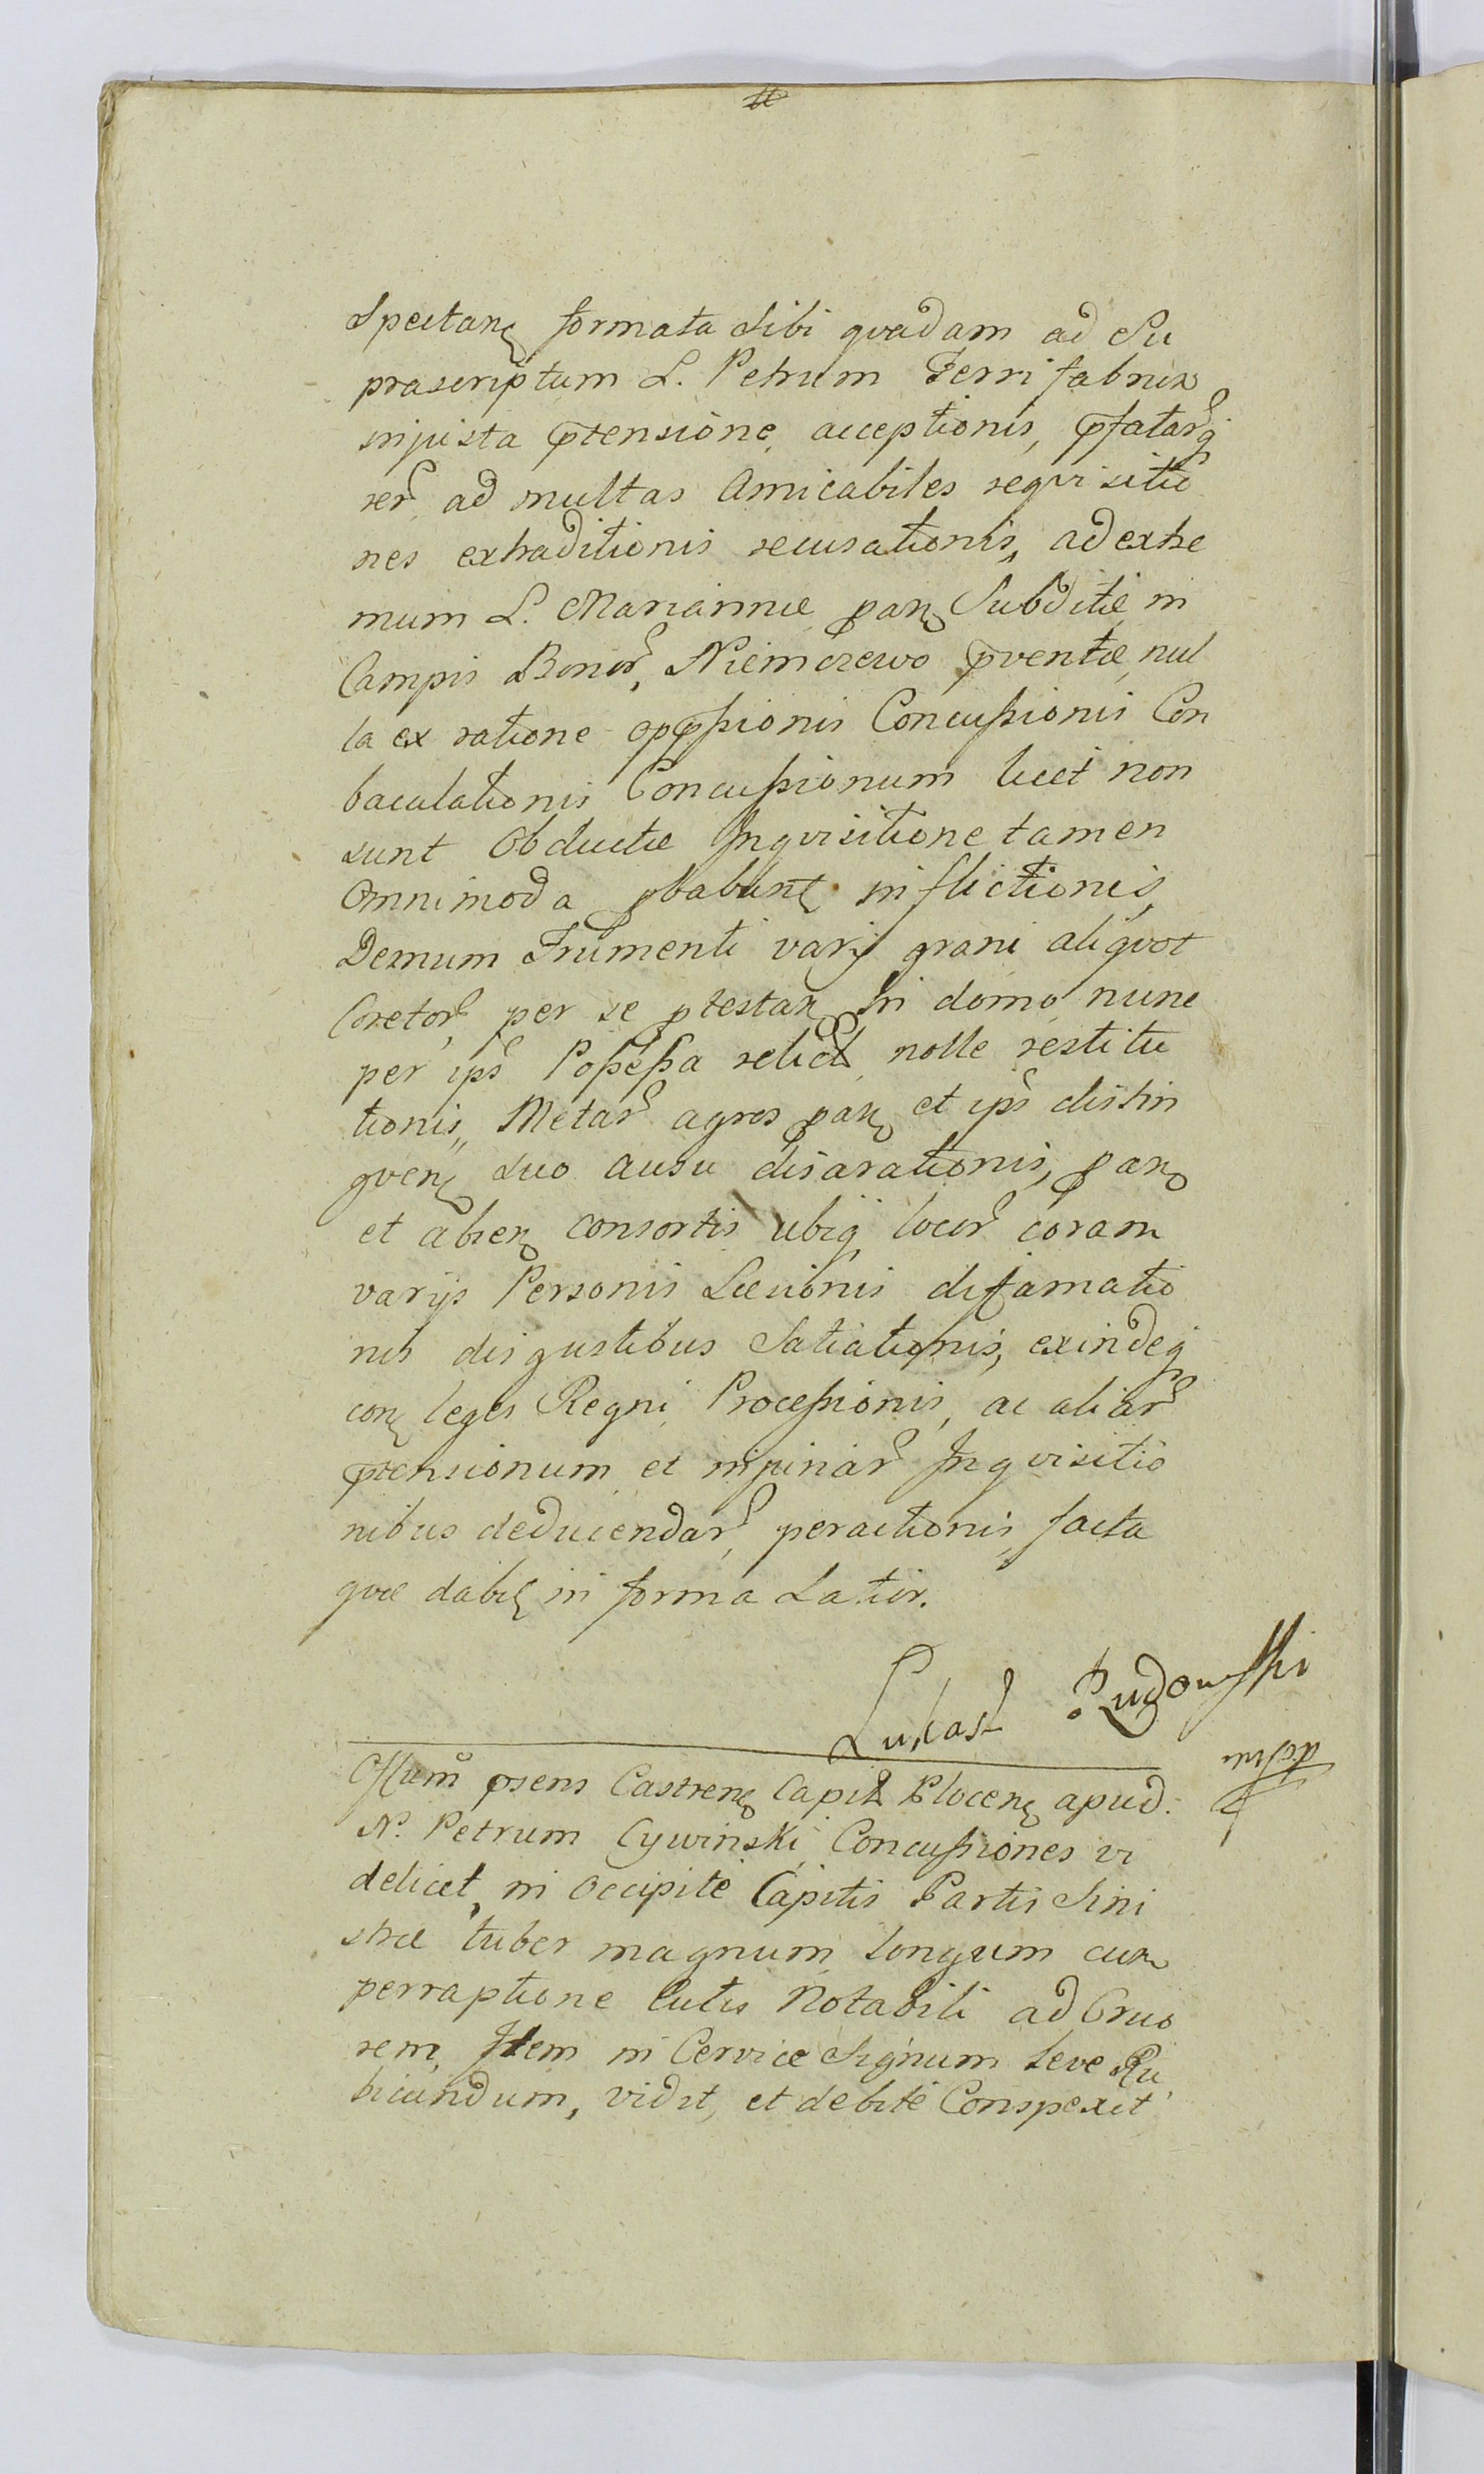 Spectanẽ formata sibi quadam ad Su
prascriptum L. Petrum Ferrifabrum
injusta ptensione, acceptionis, pfatarq
rer̃ ad multas Amicabiles reqvisitio
nes extraditionis recusationis, ad extre
mum L. Mariannæ pan Subditæ in
Campis Bonor̃, Niemczewo pventæ, nul
la ex ratione oppßionis Concußionis Con
baculationis Concußionum licet non
sunt Obductæ Inqvisitione tamen
Omnimoda pbabunt inflictionis,
Demum Frumenti varij grani aliqvot
Coretor̃ per se ptestan in domo nunc
per ips̃ Poßeßa relict, nolle restitu
tionis, Metar̃ agros pan et ips̃ distin
gven suo ausu disarationis, pan
et abien consortis ubiq locor̃ coram
varijs Personis Læsionis difamatio
nis disgustibus Satiationis, exindeq
con leges Regni Proceßionis, ac aliar̃
ptensionum et injuriar̃ Inqvisitio
nibus deducendar̃, peractionis, facta
qvæ dabit in forma Latior.
Lukasz Rudowski
Offum psens Castren Capit Plocen apud
N. Petrum Cywinski Concußiones vi
delicet, in Occipite Capitis Partis Sini
stræ tuber magnum longum cum
perraptione Cutis Notabili ad Cruo
rem, Item in Cervice Signum Leve Ru
bicundum, vidit, et debite Conspexit